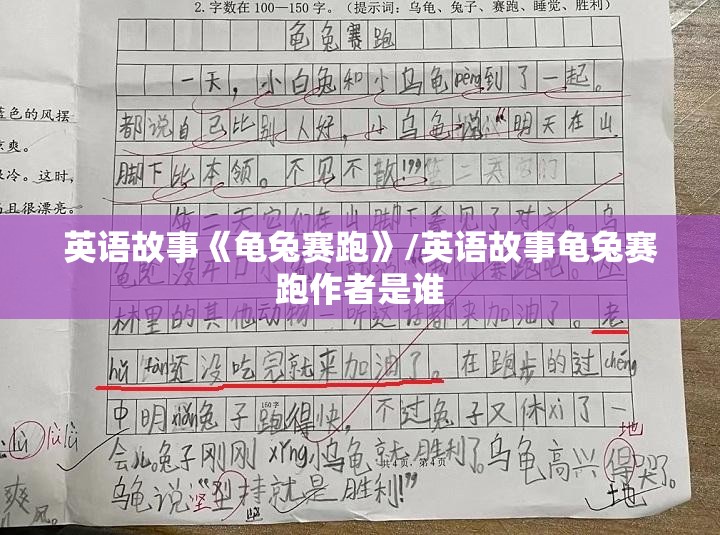 2.字数在100—150字。（提示词：乌龟、兔子、赛跑、睡觉、胜利）
龟兔赛跑
一天，小白兔和小乌龟pèng到了一起。
蓝色的风摆
都说自己比别人好，小乌龟说：“明天在山
凉爽。
脚下比本领。不见不散！
冷。这时，
且很漂亮。
第二天它们在山脚下看见了对方。乌
英语故事《龟兔赛跑》/英语故事龟兔赛
跑作者是谁
林里的其他动物一听这话都来加油了。老
hǔ fàn还没吃完就来加油了。在跑步的过chéng
150字
中明xiǎn兔子跑得快，不过兔子又休xi了一
地
lǜ lǜ lǜ
会儿。兔子刚刚xǐng，小乌龟就胜利了。乌龟高兴得哭了。
共4页，第4页
爽 风。
乌龟说：“坚持就是胜利！”
地